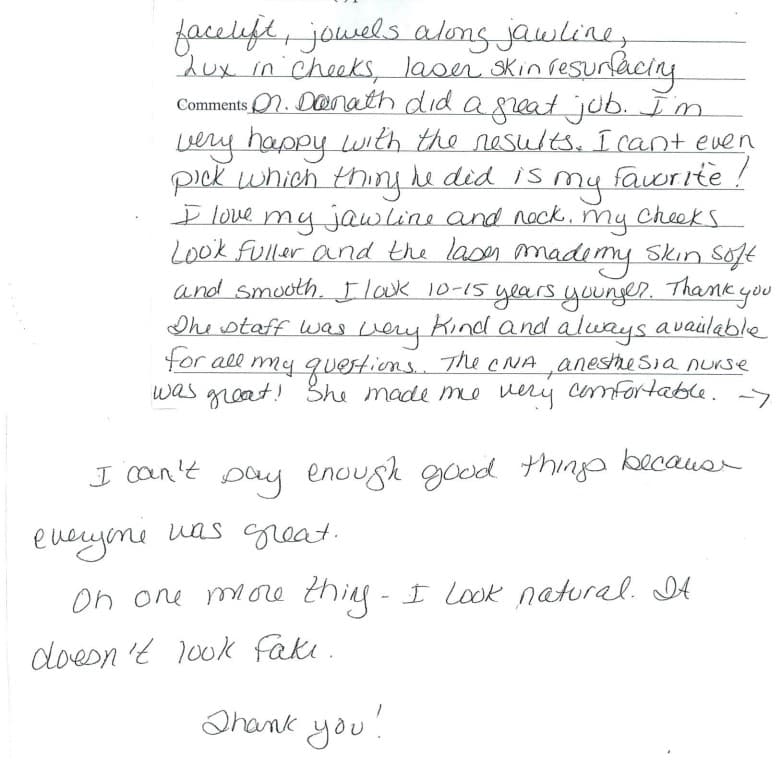 facelift, jowels along jawline,
Lux in cheeks, laser skin resurfacing
Comments Dr. Donath did a great job. I'm
very happy with the results. I cant even
pick which thing he did is my favorite!
I love my jawline and neck. My cheeks
Look fuller and the laser made my skin soft
and smooth. I look 10-15 years younger. Thank you
The staff was very kind and always available
for all my questions.. The CNA, anesthesia nurse
was great! She made me very comfortable. →
I can't say enough good things because
everyone was great.
Oh one more thing - I look natural. It
doesn't look fake.
Thank you!